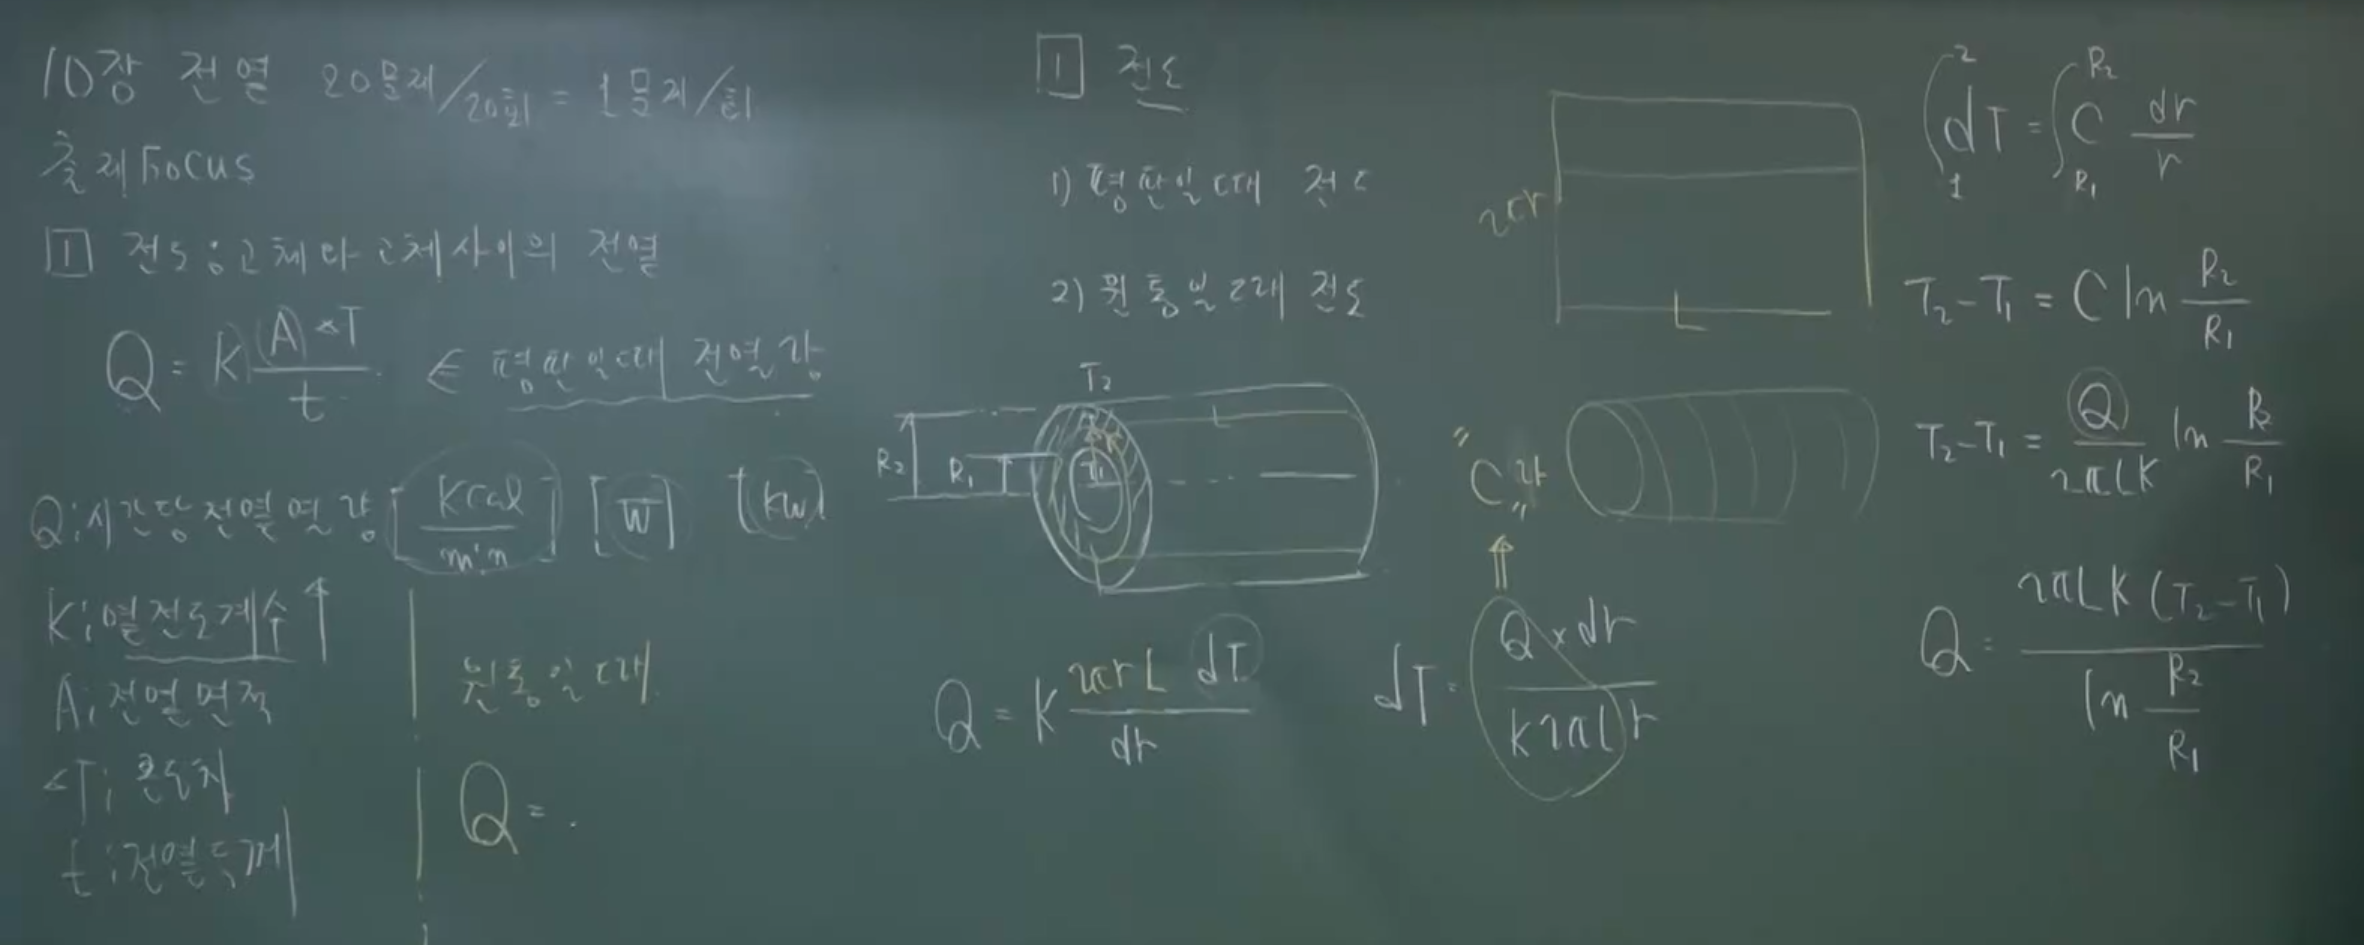 10장 전열 20문제/20회 = 1문제/회
출제 Focus
1 전도 : 고체와 고체 사이의 전열
Q = K A △T / t ∈ 평판일 때 전열량
Q ; 시간당 전열열량 [Kcal/min] [W] [kW]
K ; 열전도계수 ↑
A ; 전열면적
△T ; 온도차
t ; 전열두께
원통일 때
Q = .
1 전도
1) 평판일 때 전도
2) 원통일 때 전도
2πr
L
T2
R2 R1 T1 L
Q = K 2πrL dT / dr
"C"라
dT = Q × dr / K2πL r
∫₁² dT = ∫R1^R2 C dr / r
T2 - T1 = C ln R2 / R1
T2 - T1 = Q / 2πLK ln R2 / R1
Q = 2πLK (T2 - T1) / ln R2 / R1